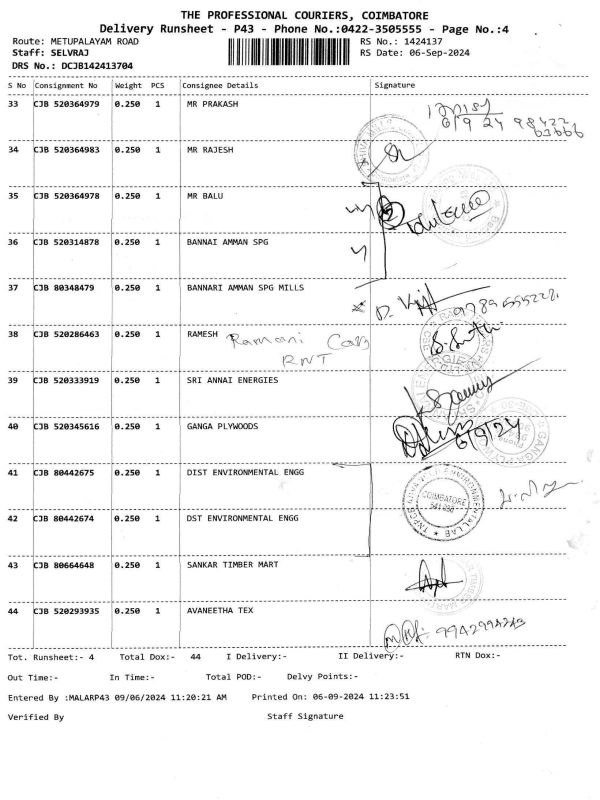 THE PROFESSIONAL COURIERS, COIMBATORE
Delivery Runsheet - P43 - Phone No.:0422-3505555 - Page No.:4
Route: METUPALAYAM ROAD RS No.: 1424137
Staff: SELVRAJ RS Date: 06-Sep-2024
DRS No.: DCJB142413704
S No Consignment No Weight PCS Consignee Details Signature
33 CJB 520364979 0.250 1 MR PRAKASH
6/9 24 98422
63666
34 CJB 520364983 0.250 1 MR RAJESH
35 CJB 520364978 0.250 1 MR BALU
36 CJB 520314878 0.250 1 BANNAI AMMAN SPG
37 CJB 80348479 0.250 1 BANNARI AMMAN SPG MILLS
38 CJB 520286463 0.250 1 RAMESH Ramani Cars
RNT
39 CJB 520333919 0.250 1 SRI ANNAI ENERGIES
40 CJB 520345616 0.250 1 GANGA PLYWOODS 6/9/24
41 CJB 80442675 0.250 1 DIST ENVIRONMENTAL ENGG
COIMBATORE
641 030
42 CJB 80442674 0.250 1 DST ENVIRONMENTAL ENGG
43 CJB 80664648 0.250 1 SANKAR TIMBER MART
44 CJB 520293935 0.250 1 AVANEETHA TEX
Tot. Runsheet:- 4 Total Dox:- 44 I Delivery:- II Delivery:- RTN Dox:-
Out Time:- In Time:- Total POD:- Delvy Points:-
Entered By :MALARP43 09/06/2024 11:20:21 AM Printed On: 06-09-2024 11:23:51
Verified By Staff Signature